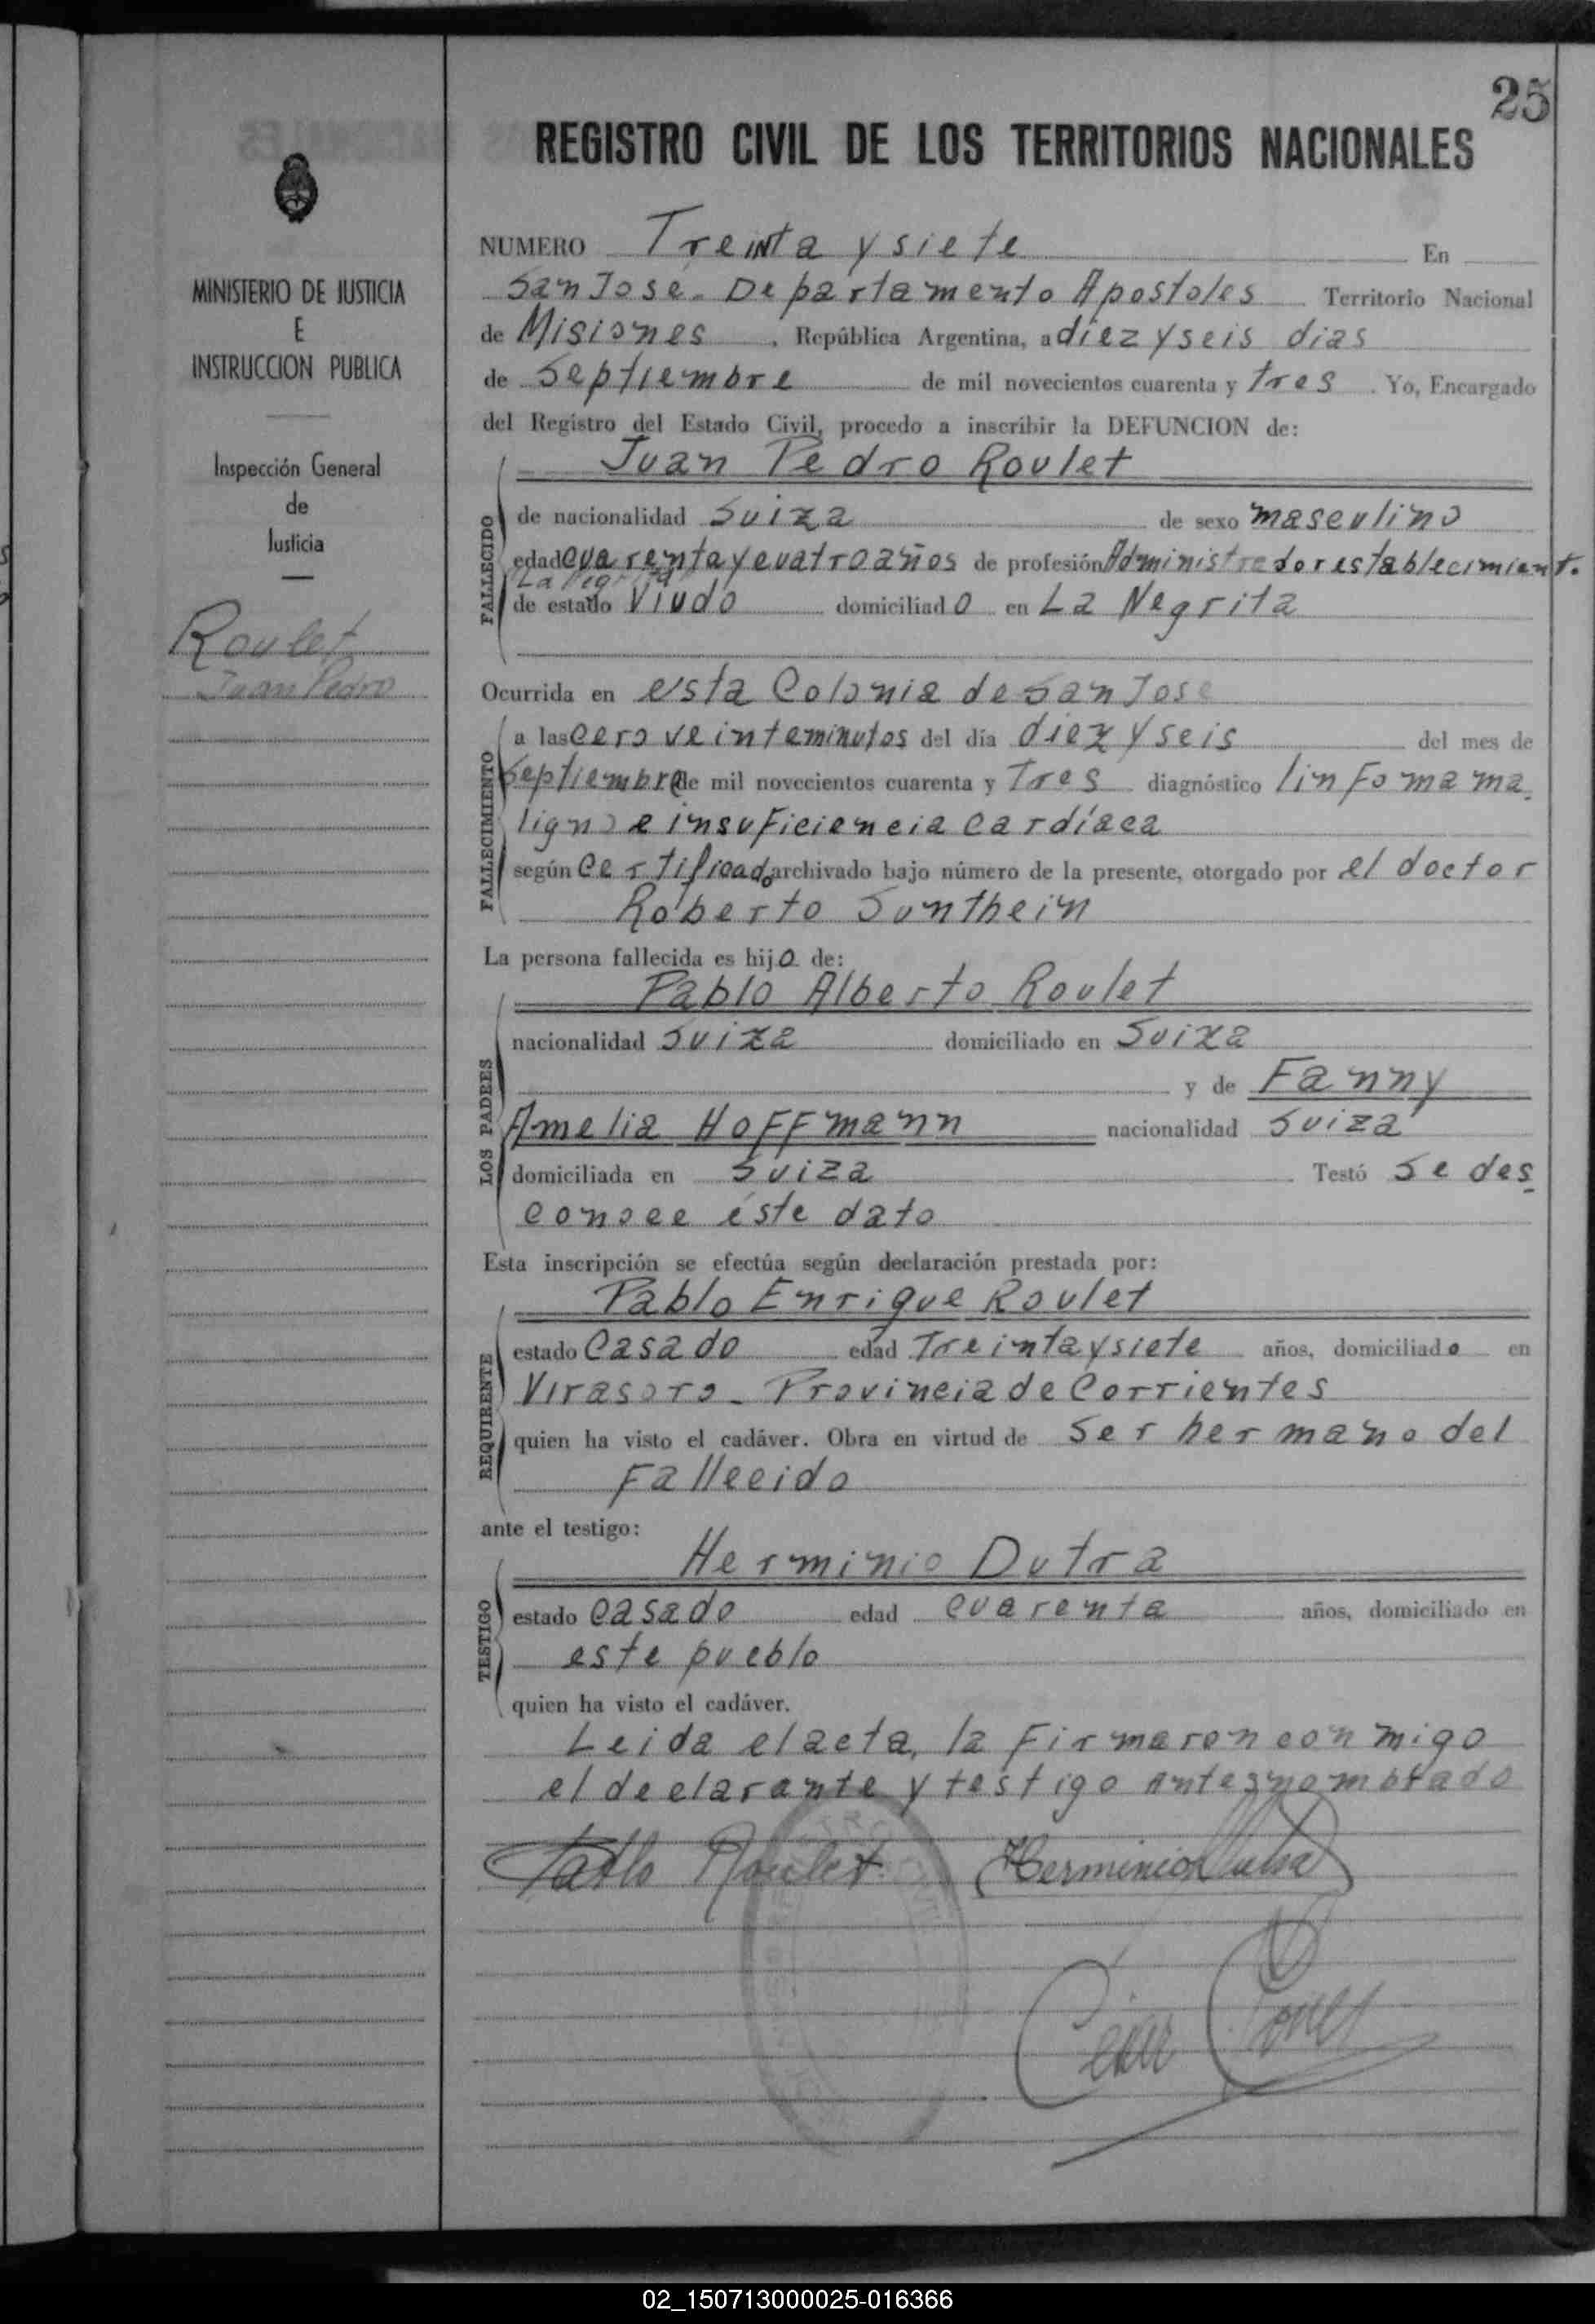 25
REGISTRO CIVIL DE LOS TERRITORIOS NACIONALES
MINISTERIO DE JUSTICIA
E
INSTRUCCION PUBLICA
Inspección General
de
Justicia
Roulet
Juan Pedro
NUMERO Treinta y siete En
San Jose. Departamento Apostoles Territorio Nacional
de Misiones , República Argentina, a diez y seis dias
de Septiembre de mil novecientos cuarenta y tres . Yo, Encargado
del Registro del Estado Civil, procedo a inscribir la DEFUNCION de:
Juan Pedro Roulet
FALLECIDO
de nacionalidad Suiza de sexo masculino
edad cuarenta y cuatro años de profesión Administrador establecimient.
La Negrita
de estado Viudo domiciliado en La Negrita
Ocurrida en esta Colonia de San Jose
FALLECIMIENTO
a las cero veinte minutos del día diez y seis del mes de
Septiembre de mil novecientos cuarenta y Tres diagnóstico linfoma ma-
ligno e insuficiencia cardíaca
según Certificado archivado bajo número de la presente, otorgado por el doctor
Roberto Sunthein
La persona fallecida es hijo de:
Pablo Alberto Roulet
LOS PADRES
nacionalidad Suiza domiciliado en Suiza
y de Fanny
Amelia Hoffmann nacionalidad Suiza
domiciliada en Suiza Testó Se des-
conoce éste dato
Esta inscripción se efectúa según declaración prestada por:
Pablo Enrique Roulet
REQUIRENTE
estado Casado edad Treinta y siete años, domiciliado en
Virasoro - Provincia de Corrientes
quien ha visto el cadáver. Obra en virtud de ser hermano del
Fallecido
ante el testigo:
Herminio Dutra
TESTIGO
estado Casado edad cuarenta años, domiciliado en
este pueblo
quien ha visto el cadáver.
Leida el acta, la firmaron conmigo
el declarante y testigo antes nombrado
Pablo Roulet Herminio Dutra
02_150713000025-016366